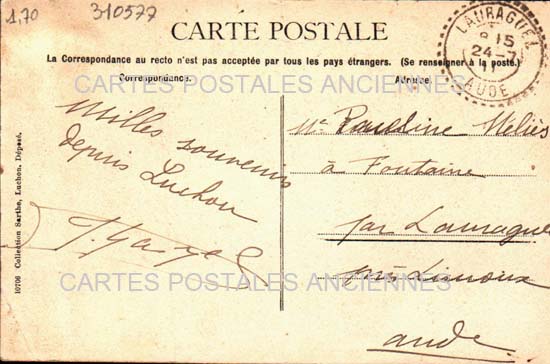 1,70 310577
CARTE POSTALE
La Correspondance au recto n'est pas acceptée par tous les pays étrangers. (Se renseigner à la poste.)
Correspondance.
Adresse.
LAURAGUEL
8 15
24-7
11
AUDE
CARTES POSTALES ANCIENNES
Milles souvenirs
depuis Luchon
Mme Pauline Meliès
à Fontaine
par Lauraguel
par Limoux
aude
CARTES POSTALES ANCIENNES
10706 Collection Sarthe, Luchon. Déposé.